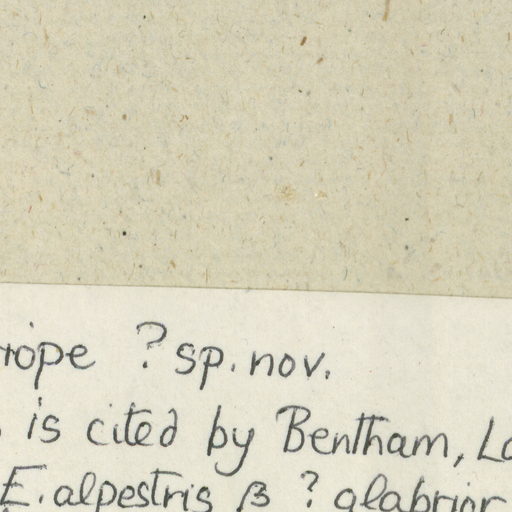 rope ? sp. nov.
is cited by Bentham, La
E. alpestris β ? glabrior